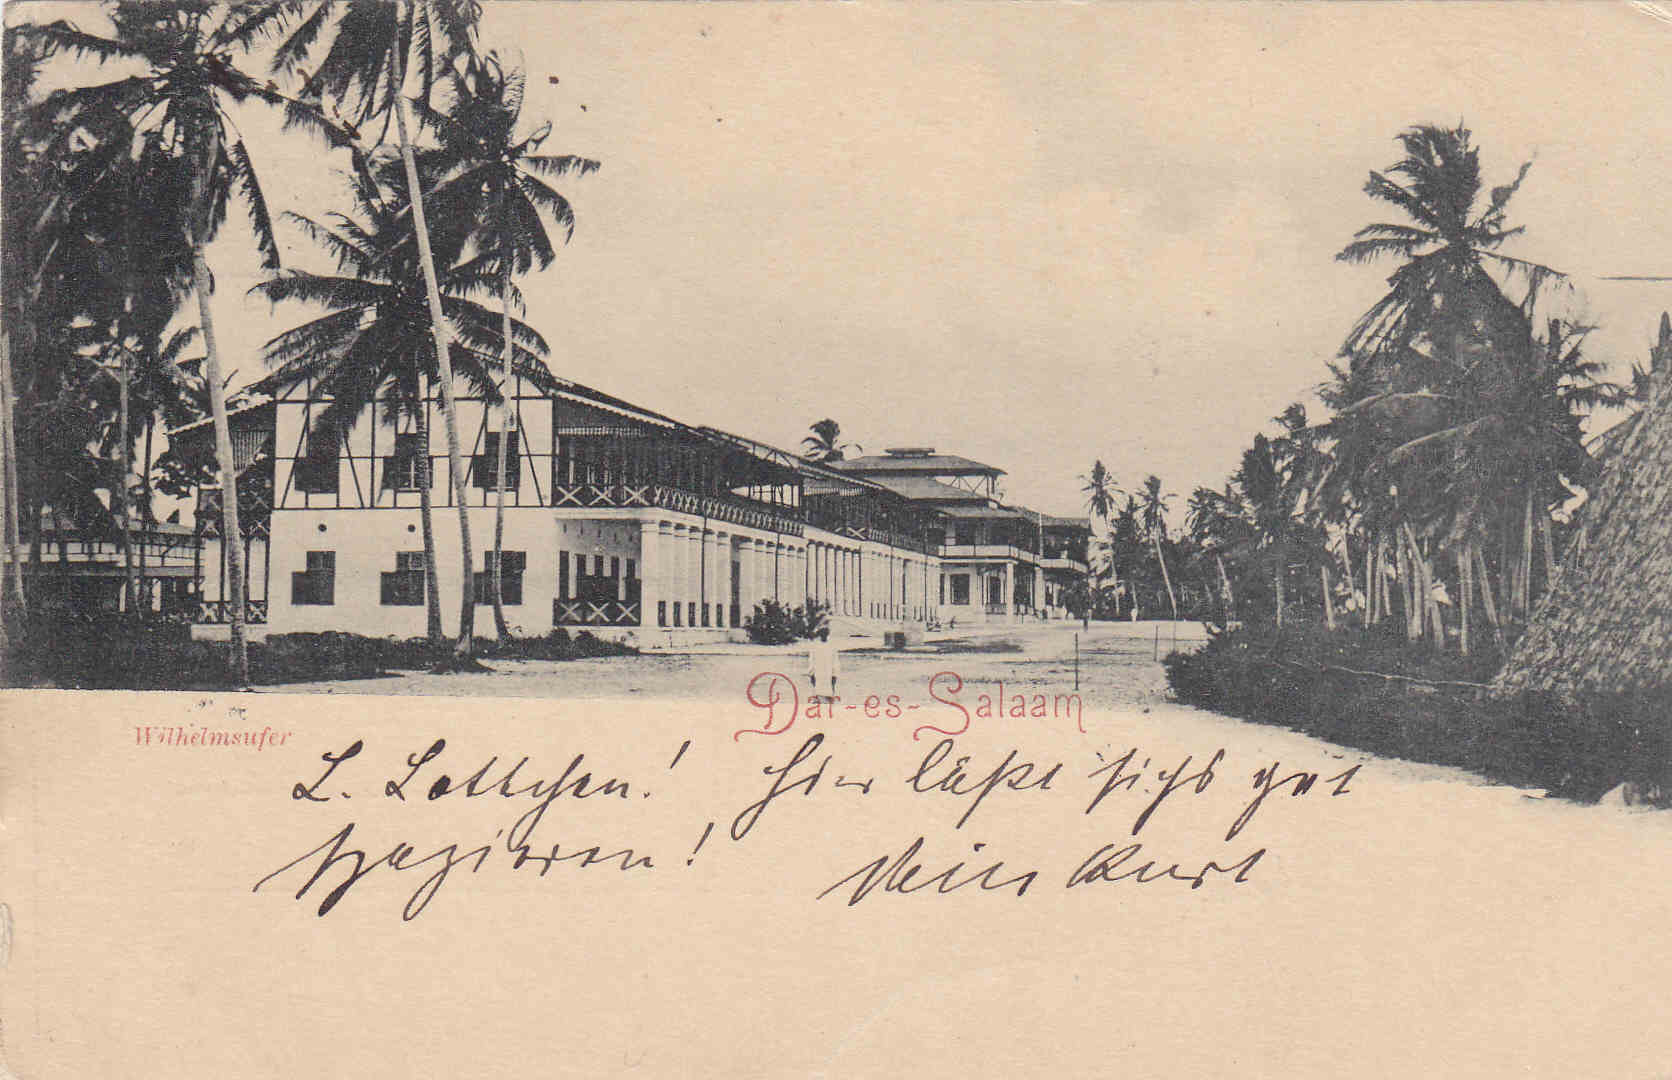 Dar-es-Salaam
Wilhelmsufer
L. Lottchen! Hier läßt sich's gut
spazieren! Dein Kurt